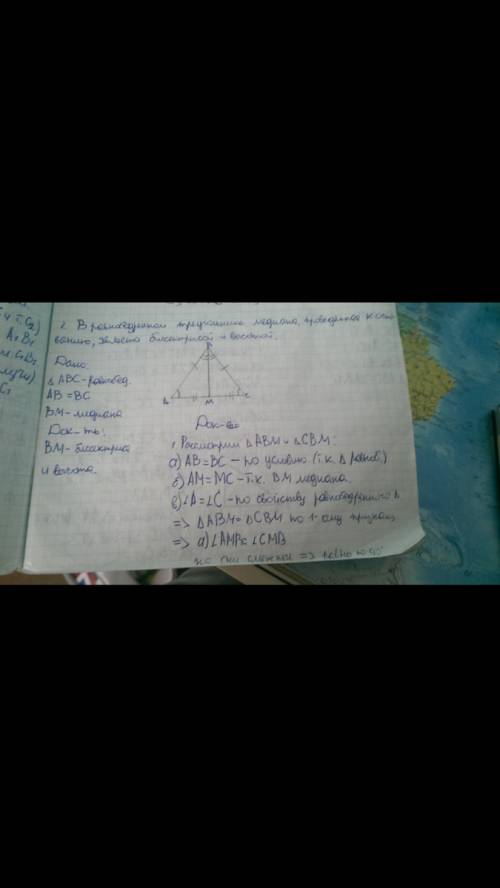 2. В равнобедренном треугольнике медиана, проведенная к осно
ванию, является биссектрисой и высотой.
Дано:
△ABC-равнобед.
AB = BC
BM-медиана
Док-ть:
BM-биссектриса
и высота.
B
A
M
C
Док-во
1. Рассмотрим △ABM и △CBM:
а) AB=BC - по условию (т.к. △ равноб.)
б) AM=MC - т.к. BM медиана.
в) ∠A=∠C - по свойству равнобедренного △
=> △ABM=△CBM по 1-ому признаку
=> а) ∠AMB=∠CMB
но они смежные => равно по 90°
и т. C2)
A1B1
C1B1
C1